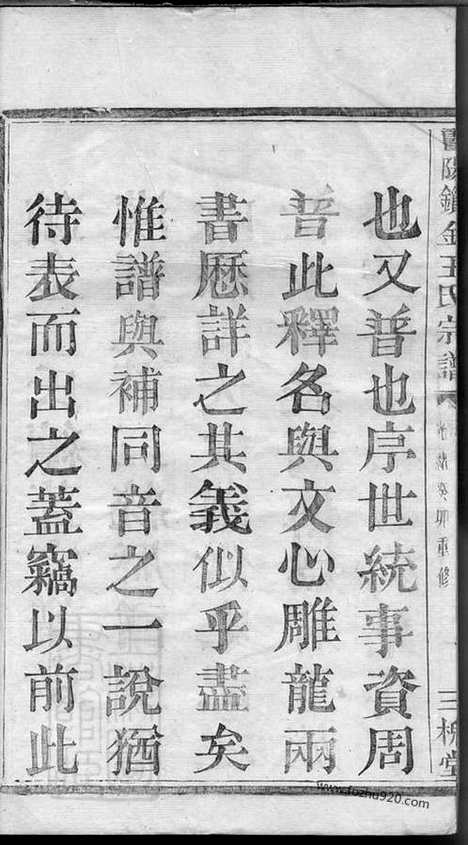 暨陽鎖金王氏宗譜 光緒癸卯重修 三槐堂
也又普也序世統事資周
普此釋名與文心雕龍兩
書歷詳之其義似乎盡矣
惟譜與補同音之一說猶
待表而出之蓋竊以前此
www.fozhu920.com